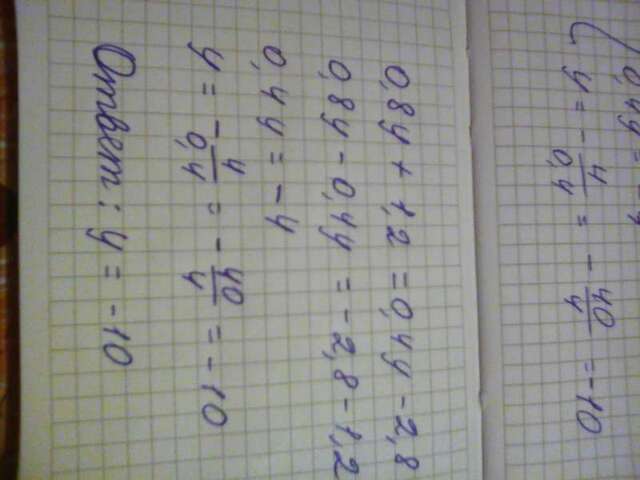 0,4y = -4
y = - 4/0,4 = - 40/4 = -10
0,8y + 1,2 = 0,4y - 2,8
0,8y - 0,4y = -2,8 - 1,2
0,4y = -4
y = - 4/0,4 = - 40/4 = -10
Ответ: y = -10